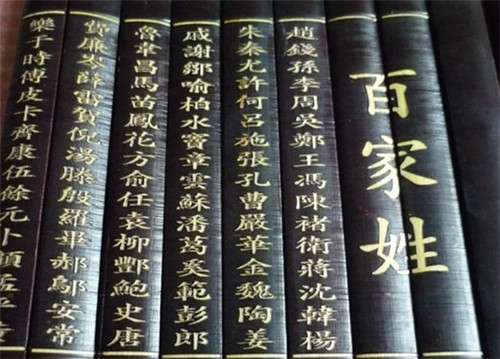 百家姓
趙錢孫李周吳鄭王馮陳褚衛蔣沈韓楊
朱秦尤許何呂施張孔曹嚴華金魏陶姜
戚謝鄒喻柏水竇章雲蘇潘葛奚範彭郎
魯韋昌馬苗鳳花方俞任袁柳酆鮑史唐
費廉岑薛雷賀倪湯滕殷羅畢郝鄔安常
樂于時傅皮卡齊康伍餘元卜頋孟平